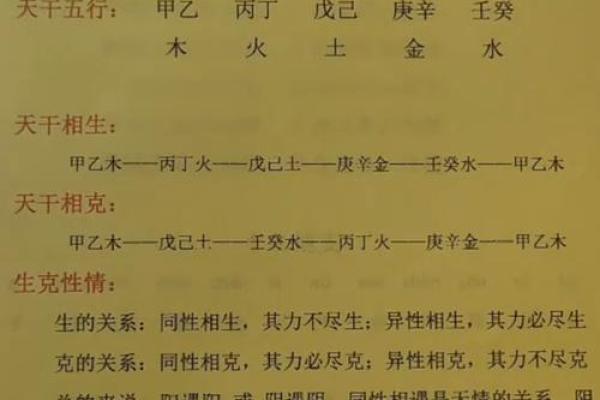 天干五行： 甲乙 丙丁 戊己 庚辛 壬癸
木 火 土 金 水
天干相生：
甲乙木——丙丁火——戊己土——庚辛金——壬癸水——甲乙木
天干相克：
甲乙木——戊己土——壬癸水——丙丁火——庚辛金——甲乙木
生克性情：
生的关系：同性相生，其力不尽生；异性相生，其力必尽生
克的关系：同性相克，其力必尽克；异性相克，其力不尽克
总的来说，阳遇阳 或 阴遇阴，同性相遇是无情的关系，阴